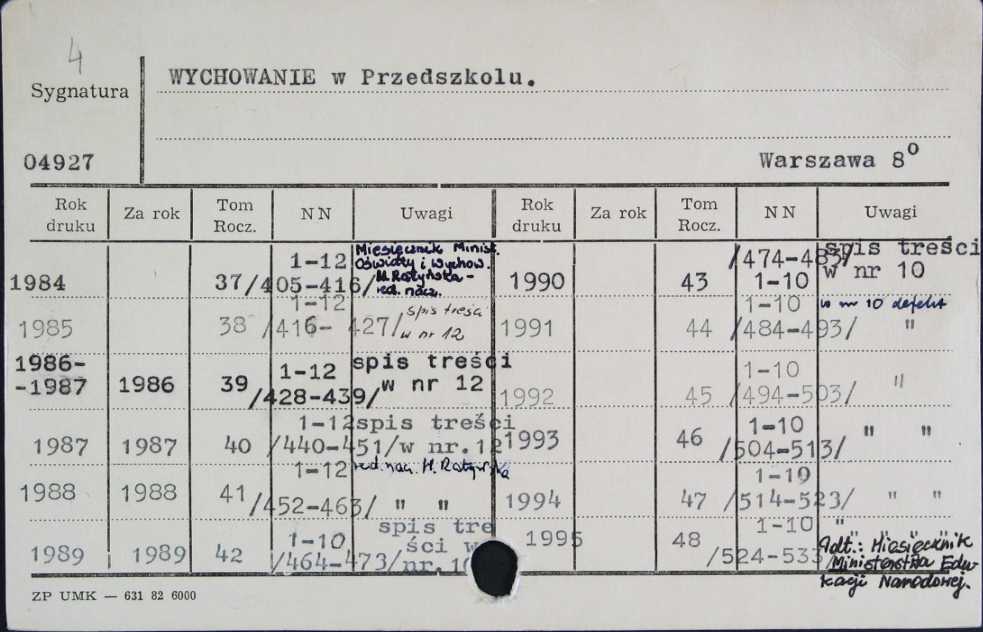 4
WYCHOWANIE w Przedszkolu.
Sygnatura
04927
Warszawa 8°
Rok druku Za rok Tom Rocz. NN Uwagi Rok druku Za rok Tom Rocz. NN Uwagi
1984 37 1-12 /405-416/ Miesięcznik Minist. Oświaty i Wychow. M. Ratyńska - red. nacz.
1985 38 1-12 /416-427/ spis treści w nr 12
1986-1987 1986 39 1-12 /428-439/ spis treści w nr 12
1987 1987 40 1-12 /440-451/ spis treści w nr.12
1988 1988 41 1-12 /452-463/ red. nacz. M. Ratyńska " "
1989 1989 42 1-10 /464-473/ spis treści w nr.10
1990 43 /474-483/ 1-10 spis treści w nr 10
1991 44 1-10 /484-493/ w nr 10 defekt "
1992 45 1-10 /494-503/ "
1993 46 1-10 /504-513/ " "
1994 47 1-10 /514-523/ " "
1995 48 1-10 /524-533 " Miesięcznik Ministerstwa Edukacji Narodowej.
ZP UMK — 631 82 6000